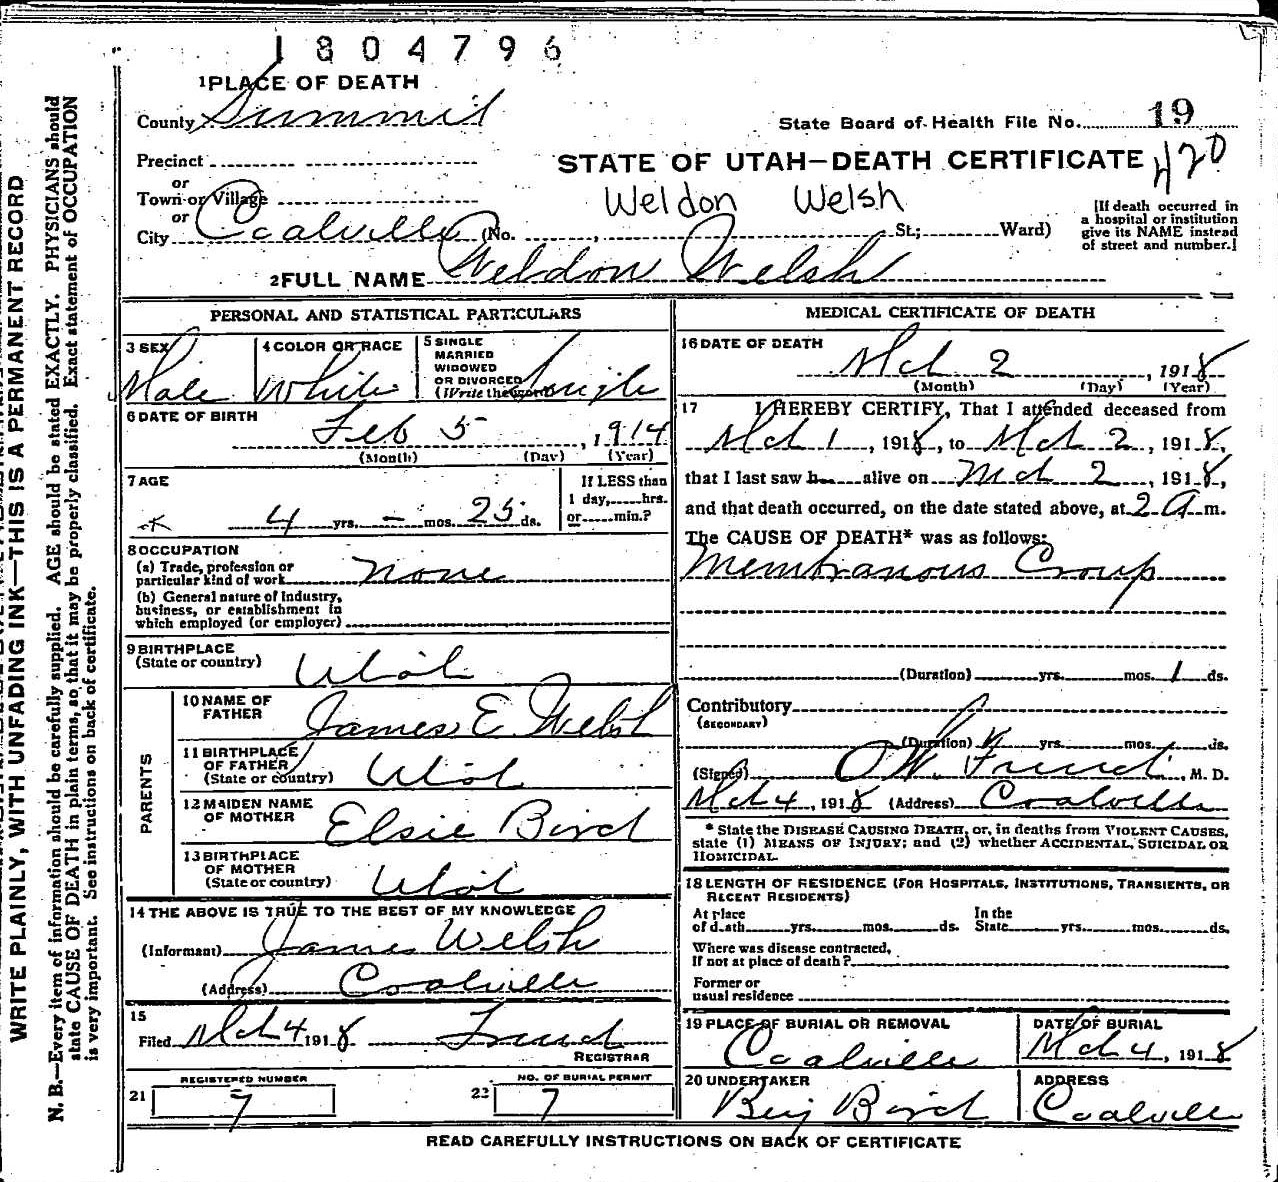 1804796
1 PLACE OF DEATH
County Summit
State Board of Health File No. 19
Precinct
STATE OF UTAH—DEATH CERTIFICATE 420
or
Town or Village
Weldon Welsh
or
City Coalville (No. , St.; Ward)
[If death occurred in
a hospital or institution
give its NAME instead
of street and number.]
2 FULL NAME Weldon Welsh
PERSONAL AND STATISTICAL PARTICULARS
3 SEX Male
4 COLOR OR RACE White
5 SINGLE
MARRIED
WIDOWED
OR DIVORCED Single
(Write the word)
6 DATE OF BIRTH
Feb 5, 1914
(Month) (Day) (Year)
7 AGE
4 yrs. – mos. 25 ds.
If LESS than
1 day, hrs.
or min.?
8 OCCUPATION
(a) Trade, profession or
particular kind of work none
(b) General nature of Industry,
business, or establishment in
which employed (or employer)
9 BIRTHPLACE
(State or country) Utah
PARENTS
10 NAME OF
FATHER James E Welsh
11 BIRTHPLACE
OF FATHER
(State or country) Utah
12 MAIDEN NAME
OF MOTHER Elsie Birch
13 BIRTHPLACE
OF MOTHER
(State or country) Utah
14 THE ABOVE IS TRUE TO THE BEST OF MY KNOWLEDGE
(Informant) James Welsh
(Address) Coalville
15
Filed Mch 4 1918
REGISTRAR
21 REGISTERED NUMBER
7
22 NO. OF BURIAL PERMIT
7
MEDICAL CERTIFICATE OF DEATH
16 DATE OF DEATH
Mch 2, 1918
(Month) (Day) (Year)
17 I HEREBY CERTIFY, That I attended deceased from
Mch 1, 1918, to Mch 2, 1918,
that I last saw h alive on Mch 2, 1918,
and that death occurred, on the date stated above, at 2 A m.
The CAUSE OF DEATH* was as follows:
Membranous Croup
(Duration) yrs. mos. 1 ds.
Contributory
(SECONDARY)
(Duration) yrs. mos. ds.
(Signed) , M. D.
Mch 4, 1918 (Address) Coalville
* State the DISEASE CAUSING DEATH, or, in deaths from VIOLENT CAUSES,
state (1) MEANS OF INJURY; and (2) whether ACCIDENTAL, SUICIDAL OR
HOMICIDAL.
18 LENGTH OF RESIDENCE (FOR HOSPITALS, INSTITUTIONS, TRANSIENTS, OR
RECENT RESIDENTS)
At place In the
of death yrs. mos. ds. State yrs. mos. ds.
Where was disease contracted,
If not at place of death?
Former or
usual residence
19 PLACE OF BURIAL OR REMOVAL
Coalville
DATE OF BURIAL
Mch 4, 1918
20 UNDERTAKER
Benj Birch
ADDRESS
Coalville
READ CAREFULLY INSTRUCTIONS ON BACK OF CERTIFICATE
WRITE PLAINLY, WITH UNFADING INK—THIS IS A PERMANENT RECORD
N. B.—Every item of information should be carefully supplied. AGE should be stated EXACTLY. PHYSICIANS should
state CAUSE OF DEATH in plain terms, so that it may be properly classified. Exact statement of OCCUPATION
is very important. See instructions on back of certificate.